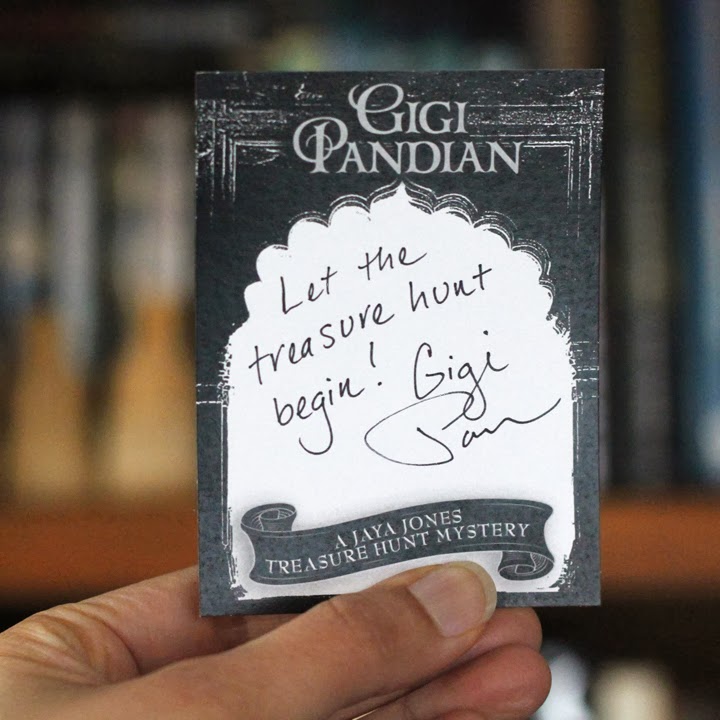 GIGI
PANDIAN
Let the
treasure hunt
begin! Gigi
Pan
A JAYA JONES
TREASURE HUNT MYSTERY